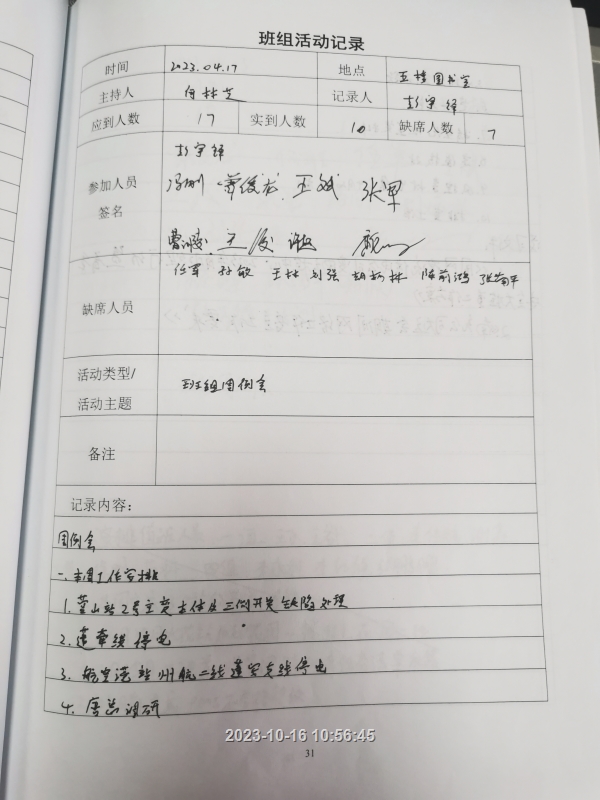 班组活动记录
时间 2023.04.17 地点 五楼图书室
主持人 何林芝 记录人 彭宇锋
应到人数 17 实到人数 10 缺席人数 7
彭宇锋
参加人员
签名 王斌 张军
任军 孙敏 王林 刘强 胡彬林 陈前鸿 张富平
缺席人员
活动类型/
活动主题 班组周例会
备注
记录内容:
周例会
一、本周工作安排
1. 董山站2号主变本体及三侧开关缺陷处理
2. 莲牵线停电
3. 航空港站州航二线莲空支线停电
4. 唐总调研
2023-10-16 10:56:45
31